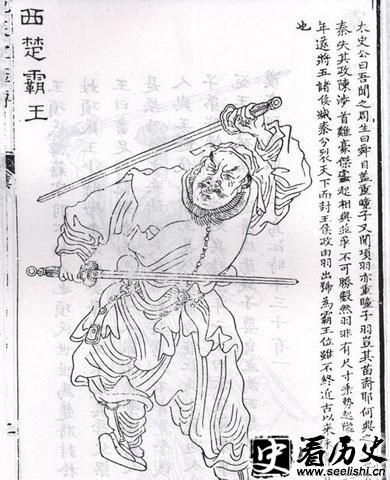 太史公曰吾聞之周生曰舜目盖重瞳子又聞項羽亦重瞳子羽豈其苗裔耶何興
秦失其政陳涉首難豪傑蠭起相與並爭不可勝數然羽非有尺寸乘勢起隴
年遂將五諸侯滅秦分裂天下而封王侯政由羽出號為霸王位雖不終近古以來
也
西楚霸王
史看历史
www.seelishi.cn